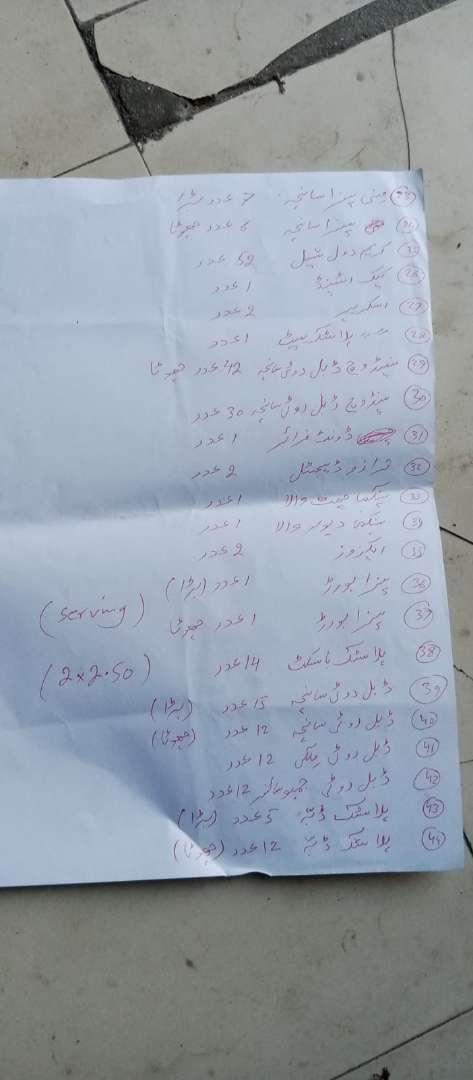 منی پیزا سانچہ 7 عدد بڑا
پیزا سانچہ 6 عدد چھوٹا
کریم رول شیل 52 عدد
کیک اسٹینڈ 1 عدد
27 اسکریپر 2 عدد
28 پلاسٹک سیٹ 1 عدد
29 سینڈوچ ڈبل روٹی سانچہ 42 عدد چھوٹا
30 سینڈوچ ڈبل روٹی سانچہ 30 عدد
31 ڈونٹ فرائر 1 عدد
32 ترازو ڈیجیٹل 2 عدد
33 پنکھا چھت والا 1 عدد
34 پنکھا دیوار والا 1 عدد
35 ایگزوز 2 عدد
36 پیزا بورڈ 1 عدد (بڑا) (serving)
37 پیزا بورڈ 1 عدد چھوٹا
38 پلاسٹک باسکٹ 14 عدد (2x2.50)
39 ڈبل روٹی سانچہ 15 عدد (بڑا)
40 ڈبل روٹی سانچہ 12 عدد (چھوٹا)
41 ڈبل روٹی ملکی 12 عدد
42 ڈبل روٹی جمبو سائز 12 عدد
43 پلاسٹک ڈبہ 5 عدد (بڑا)
44 پلاسٹک ڈبہ 12 عدد (چھوٹا)